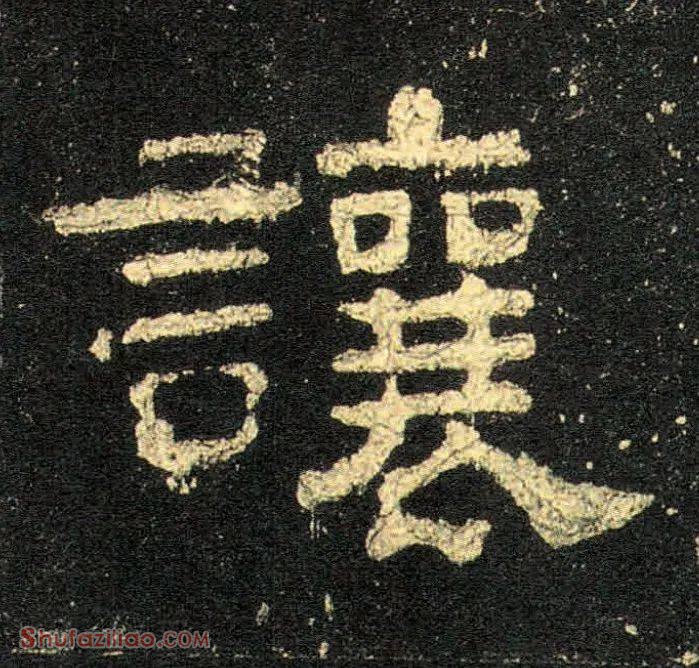 讓
Shufaziliao.COM